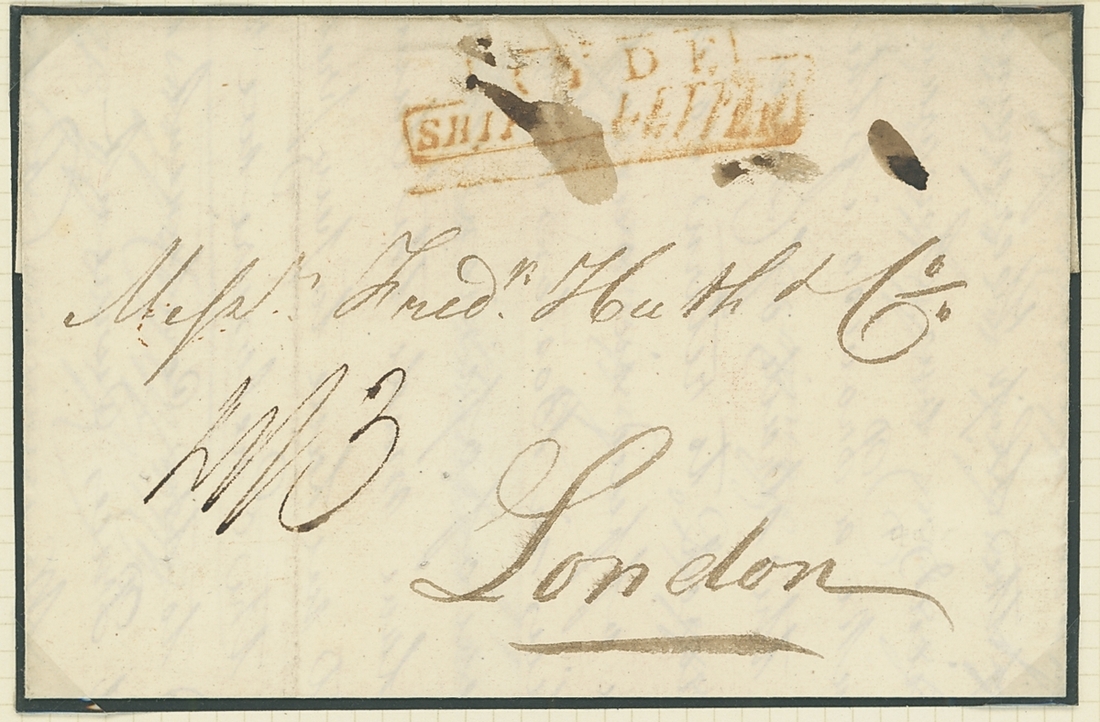 RYDE
SHIP LETTER
Messrs. Fredk. Huth & Co.
London